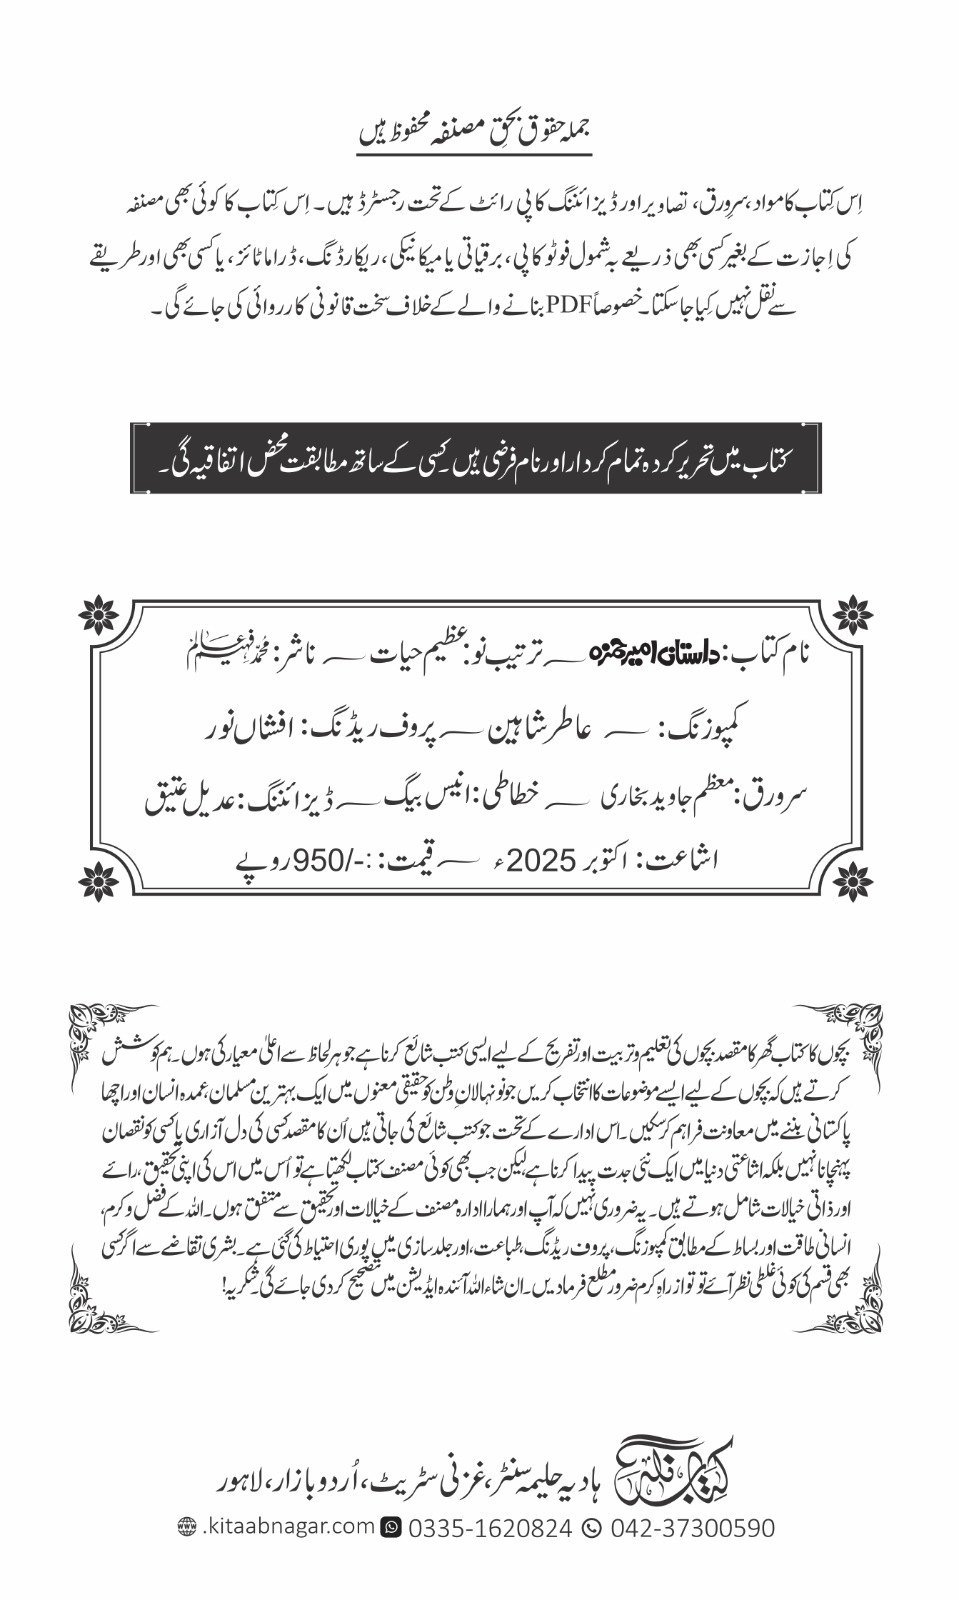 جملہ حقوق بحقِ مصنفہ محفوظ ہیں
اِس کِتاب کا مواد، سرورق، تصاویر اور ڈیزائننگ کاپی رائٹ کے تحت رجسٹرڈ ہیں۔ اِس کِتاب کا کوئی بھی مصنفہ
کی اِجازت کے بغیر کسی بھی ذریعے بہ شمول فوٹو کاپی، برقیاتی یا میکانیکی، ریکارڈنگ، ڈراماٹائز، یا کسی بھی اور طریقے
سے نقل نہیں کِیا جا سکتا۔ خصوصاً PDF بنانے والے کے خلاف سخت قانونی کارروائی کی جائے گی۔
کتاب میں تحریر کردہ تمام کردار اور نام فرضی ہیں۔ کسی کے ساتھ مطابقت محض اتفاقیہ گی۔
نام کتاب: داستان امیر حمزہ — ترتیب نو: عظیم حیات — ناشر: محمد فہیم عالم
کمپوزنگ: — عاطر شاہین — پروف ریڈنگ: افشاں نور
سرورق: معظم جاوید بخاری — خطاطی: انیس بیگ — ڈیزائننگ: عدیل عتیق
اشاعت: اکتوبر 2025ء — قیمت: :-/950 روپے
بچوں کا کتاب گھر کا مقصد بچوں کی تعلیم و تربیت اور تفریح کے لیے ایسی کتب شائع کرنا ہے جو ہر لحاظ سے اعلیٰ معیار کی ہوں۔ ہم کوشش
کرتے ہیں کہ بچوں کے لیے ایسے موضوعات کا انتخاب کریں جو نونہالانِ وطن کو حقیقی معنوں میں ایک بہترین مسلمان، عمدہ انسان اور اچھا
پاکستانی بننے میں معاونت فراہم کر سکیں۔ اس ادارے کے تحت جو کتب شائع کی جاتی ہیں اُن کا مقصد کسی کی دل آزاری یا کسی کو نقصان
پہنچانا نہیں بلکہ اشاعتی دنیا میں ایک نئی جدت پیدا کرنا ہے لیکن جب بھی کوئی مصنف کتاب لکھتا ہے تو اُس میں اس کی اپنی تحقیق، رائے
اور ذاتی خیالات شامل ہوتے ہیں۔ یہ ضروری نہیں کہ آپ اور ہمارا ادارہ مصنف کے خیالات اور تحقیق سے متفق ہوں۔ اللہ کے فضل و کرم،
انسانی طاقت اور بساط کے مطابق کمپوزنگ، پروف ریڈنگ، طباعت، اور جلد سازی میں پوری احتیاط کی گئی ہے۔ بشری تقاضے سے اگر کسی
بھی قسم کی کوئی غلطی نظر آئے تو تو از راہِ کرم ضرور مطلع فرما دیں۔ ان شاء اللہ آئندہ ایڈیشن میں تصحیح کر دی جائے گی۔ شکریہ!
کتاب نگر ہادیہ حلیمہ سنٹر، غزنی سٹریٹ، اُردو بازار، لاہور
.kitaabnagar.com 0335-1620824 042-37300590